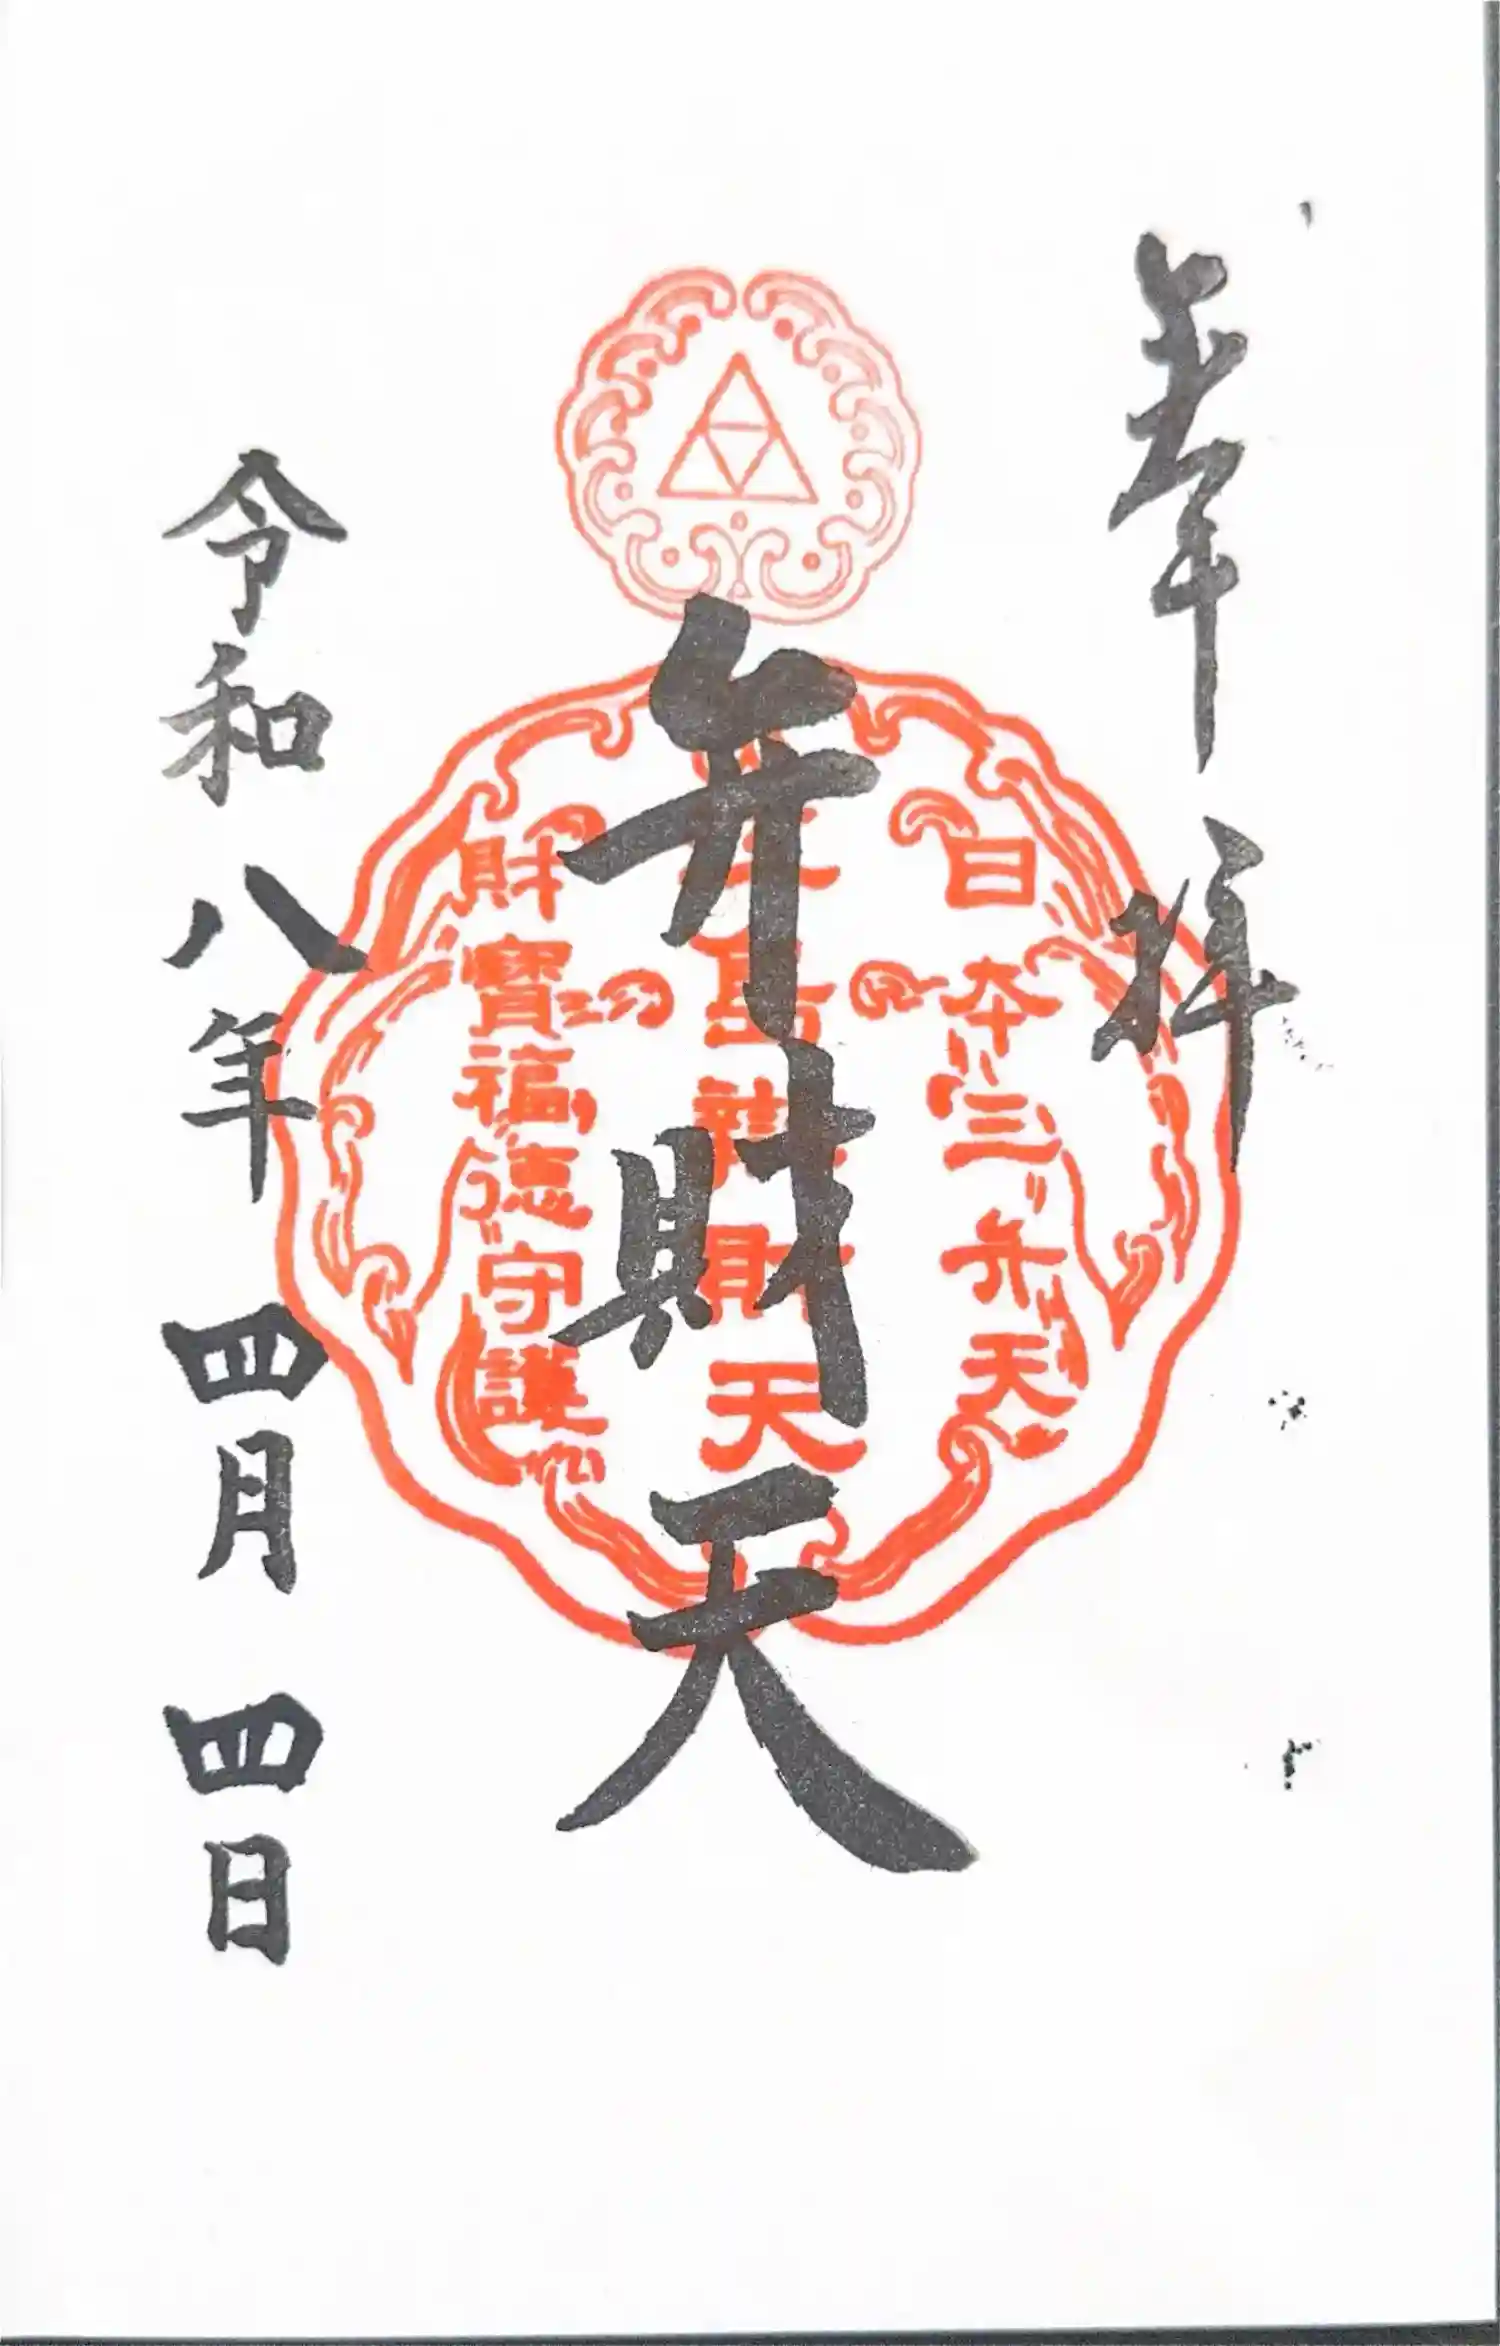 奉拝
日本三弁天
島辨財天
財寶福徳守護
弁財天
令和八年 四月 四日